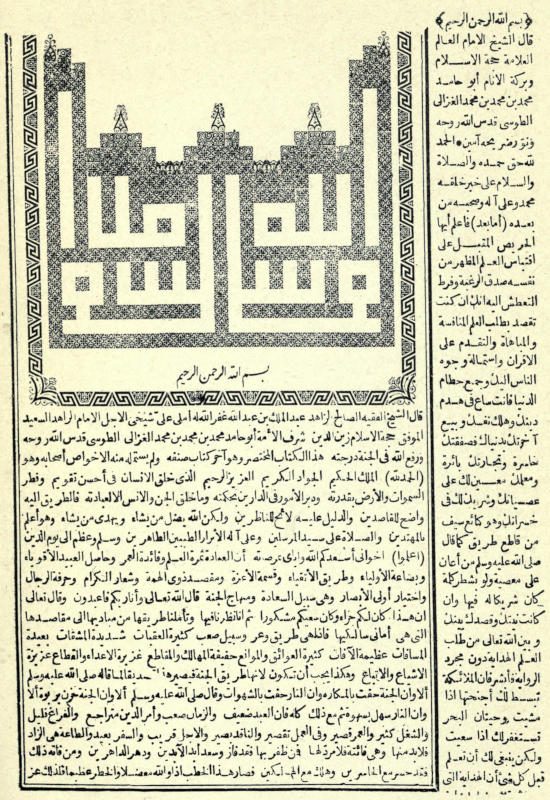 ﴿بسم الله الرحمن الرحيم﴾
قال الشيخ الامام العالم
العلامة حجة الاسلام
وبركة الانام أبو حامد
محمد بن محمد بن محمد الغزالى
الطوسى قدس الله روحه
ونور ضريحه آمين الحمد
لله حق حمده والصلاة
والسلام على خير خلقه
محمد وعلى آله وصحبه من
بعده (أما بعد) فاعلم أيها
الحريص المقبل على
اقتباس العلم المظهر من
نفسه صدق الرغبة وفرط
التعطش اليه انك ان كنت
تقصد بطلب العلم المنافسة
والمباهاة والتقدم على
الاقران واستمالة وجوه
الناس اليك وجمع حطام
الدنيا فانت ساع فى هدم
دينك وهلاك نفسك وبيع
آخرتك بدنياك فصفقتك
خاسرة وتجارتك بائرة
ومعلمك معين لك على
عصيانك وشريك لك فى
خسرانك وهو كبائع سيف
من قاطع طريق كما قال
صلى الله عليه وسلم من أعان
على معصية ولو بشطر كلمة
كان شريكا له فيها وان
كانت نيتك وقصدك بينك
وبين الله تعالى من طلب
العلم الهداية دون مجرد
الرواية فأبشر فان الملائكة
تبسط لك أجنحتها اذا
مشيت وحيتان البحر
تستغفر لك اذا سعيت
ولكن ينبغى لك أن تعلم
قبل كل شئ أن الهداية التى
بسم الله الرحمن الرحيم
قال الشيخ الفقيه الصالح الزاهد عبد الملك بن عبد الله غفر الله له أملى على شيخى الاجل الامام الزاهد السعيد
الموفق حجة الاسلام زين الدين شرف الأئمة أبو حامد محمد بن محمد بن محمد الغزالى الطوسى قدس الله روحه
ورفع الله فى الجنة درجته هذا الكتاب المختصر وهو آخر كتاب صنفه ولم يستمله منه الا خواص أصحابه وهو
(الحمد لله) الملك الحكيم الجواد الكريم العزيز الرحيم الذى خلق الانسان فى أحسن تقويم وفطر
السموات والأرض بقدرته ودبر الأمور فى الدارين بحكمته وما خلق الجن والانس الا لعبادته فالطريق اليه
واضح للقاصدين والدليل عليه لائح للناظرين ولكن الله يضل من يشاء ويهدى من يشاء وهو أعلم
بالمهتدين والصلاة على سيد المرسلين وعلى آله الأبرار الطيبين الطاهرين وسلم وعظم الى يوم الدين
(اعلموا) اخوانى أسعدكم الله واياى بمرضاته أن العبادة ثمرة العلم وفائدة العمر وحاصل العبيد الأقوياء
وبضاعة الأولياء وطريق الأتقياء وقسمة الأعزة ومقصد ذوى الهمة وشعار الكرام وحرفة الرجال
واختيار أولى الأبصار وهى سبيل السعادة ومنهاج الجنة قال الله تعالى وأنا ربكم فاعبدون وقال تعالى
ان هذا كان لكم جزاء وكان سعيكم مشكورا ثم انا نظرنا فيها وتأملنا طريقها من مباديها الى مقاصدها
التى هى أمانى سالكيها فاذا هى طريق وعر وسبيل صعب كثيرة العقبات شديدة المشقات بعيدة
المسافات عظيمة الآفات كثيرة العوائق والموانع خفيفة المهالك والمقاطع غزيرة الاعداء والقطاع عزيزة
الاشياع والاتباع وهكذا يجب أن تكون لانها طريق الجنة فيصير هذا تصديقا لما قاله صلى الله عليه وسلم
ألا وان الجنة حفت بالمكاره وان النار حفت بالشهوات وقال صلى الله عليه وسلم ألا وان الجنة حزن بربوة ألا
وان النار سهل بسهوة ثم مع ذلك كله فان العبد ضعيف والزمان صعب وأمر الدين متراجع والفراغ قليل
والشغل كثير والعمر قصير وفى العمل تقصير والناقد بصير والاجل قريب والسفر بعيد والطاعة هى الزاد
فلا بد منها وهى فائتة فلا مرد لها فمن ظفر بها فقد فاز وسعد أبد الآبدين ودهر الداهرين ومن فاته ذلك
فقد خسر مع الخاسرين وهلك مع الهالكين فصار هذا الخطب اذا والله معضلا والخطر عظيما فلذلك عز